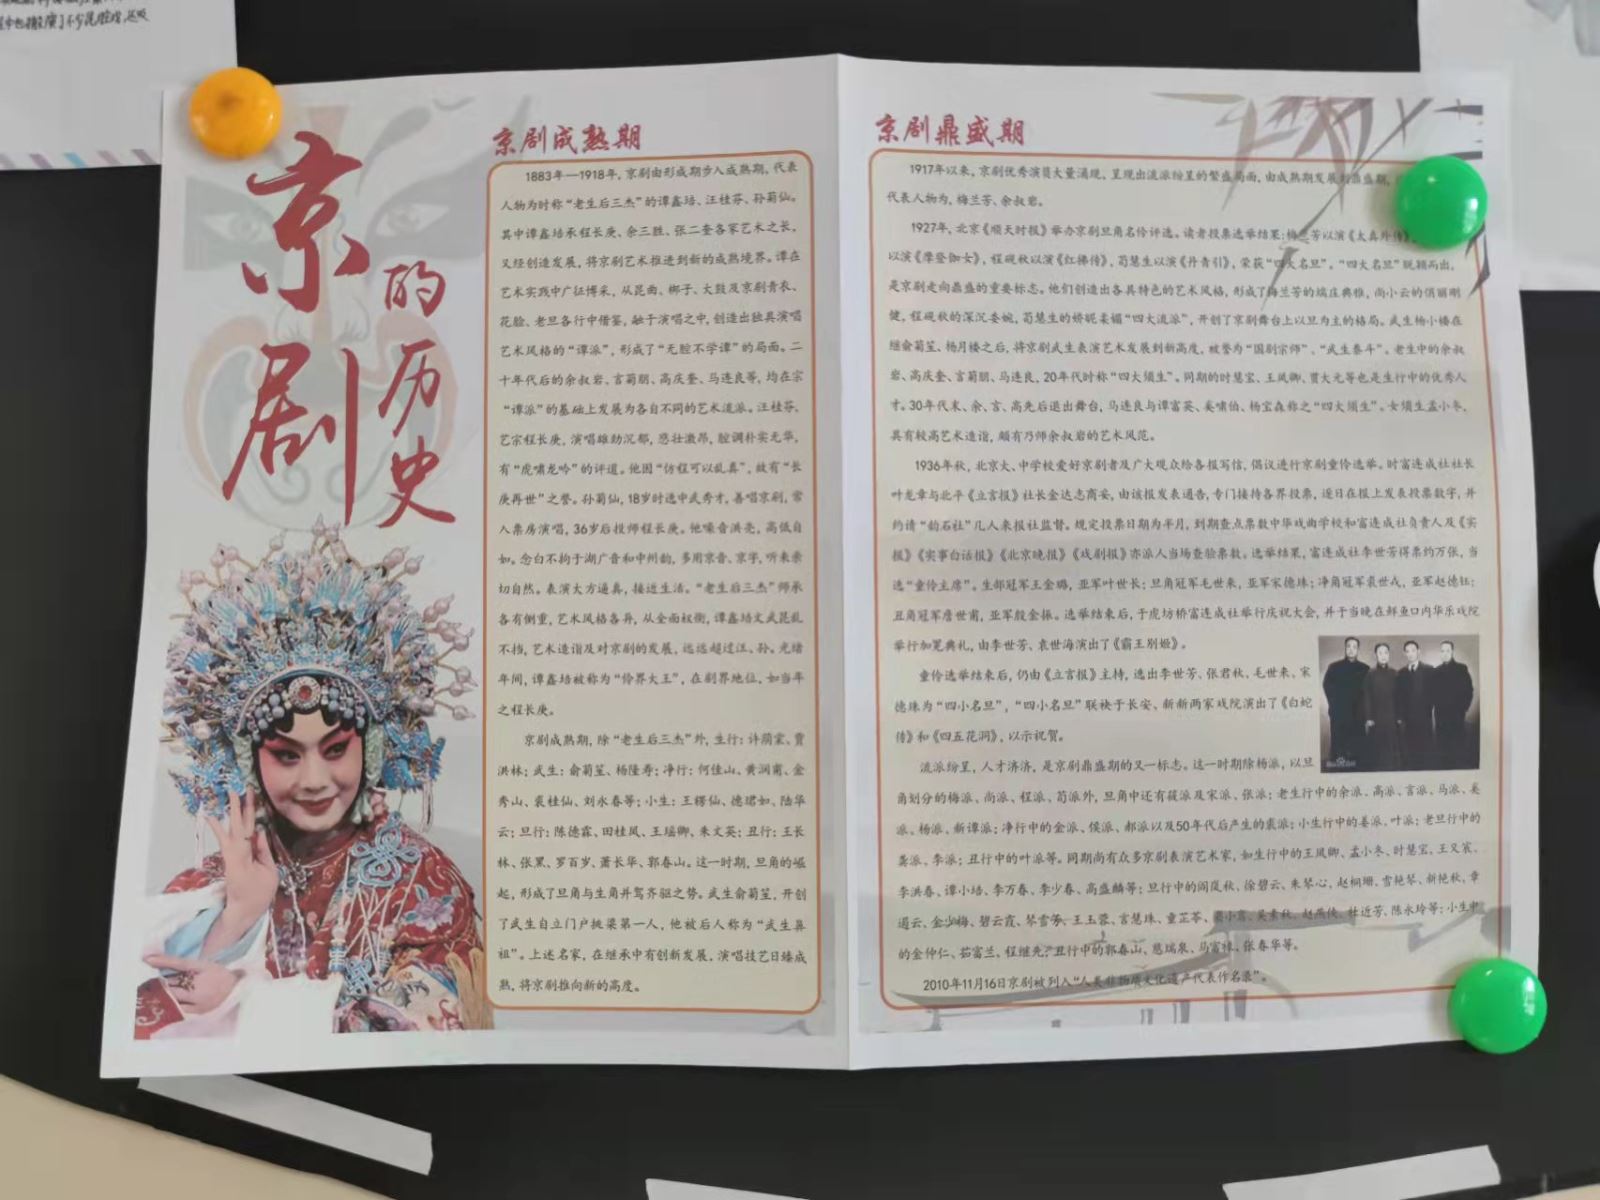 程中也搬演了不少昆腔戏,还吸
京剧
的历史
京剧成熟期
1883年—1918年,京剧由形成期步入成熟期,代表
人物为时称“老生后三杰”的谭鑫培、汪桂芬、孙菊仙。
其中谭鑫培承程长庚、余三胜、张二奎各家艺术之长,
又经创造发展,将京剧艺术推进到新的成熟境界。谭在
艺术实践中广征博采,从昆曲、梆子、大鼓及京剧青衣、
花脸、老旦各行中借鉴,融于演唱之中,创造出独具演唱
艺术风格的“谭派”,形成了“无腔不学谭”的局面。二
十年代后的余叔岩、言菊朋、高庆奎、马连良等,均在宗
“谭派”的基础上发展为各自不同的艺术流派。汪桂芬,
艺宗程长庚,演唱雄劲沉郁,悲壮激昂,腔调朴实无华,
有“虎啸龙吟”的评道。他因“仿程可以乱真”,故有“长
庚再世”之誉。孙菊仙,18岁时选中武秀才,善唱京剧,常
入票房演唱,36岁后投师程长庚。他嗓音洪亮,高低自
如。念白不拘于湖广音和中州韵,多用京音、京字,听来亲
切自然。表演大方逼真,接近生活。“老生后三杰”师承
各有侧重,艺术风格各异,从全面权衡,谭鑫培文武昆乱
不挡,艺术造诣及对京剧的发展,远远超过汪、孙。光绪
年间,谭鑫培被称为“伶界大王”,在剧界地位,如当年
之程长庚。
京剧成熟期,除“老生后三杰”外,生行:许荫棠、贾
洪林;武生:俞菊笙、杨隆寿;净行:何佳山、黄润甫、金
秀山、裘桂仙、刘永春等;小生:王楞仙、德珺如、陆华
云;旦行:陈德霖、田桂凤、王瑶卿、朱文英;丑行:王长
林、张黑、罗百岁、萧长华、郭春山。这一时期,旦角的崛
起,形成了旦角与生角并驾齐驱之势。武生俞菊笙,开创
了武生自立门户挑梁第一人,他被后人称为“武生鼻
祖”。上述名家,在继承中有创新发展,演唱技艺日臻成
熟,将京剧推向新的高度。
京剧鼎盛期
1917年以来,京剧优秀演员大量涌现,呈现出流派纷呈的繁盛局面,由成熟期发展到鼎盛期,
代表人物为,梅兰芳、余叔岩。
1927年,北京《顺天时报》举办京剧旦角名伶评选。读者投票选举结果:梅兰芳以演《太真外传》,
以演《摩登伽女》,程砚秋以演《红拂传》,荀慧生以演《丹青引》,荣获“四大名旦”。“四大名旦”脱颖而出,
是京剧走向鼎盛的重要标志。他们创造出各具特色的艺术风格,形成了梅兰芳的端庄典雅,尚小云的俏丽刚
健,程砚秋的深沉委婉,荀慧生的娇昵柔媚“四大流派”,开创了京剧舞台上以旦为主的格局。武生杨小楼在
继俞菊笙、杨月楼之后,将京剧武生表演艺术发展到新高度,被誉为“国剧宗师”、“武生泰斗”。老生中的余叔
岩、高庆奎、言菊朋、马连良,20年代时称“四大须生”。同期的时慧宝、王凤卿、贾大元等也是生行中的优秀人
才。30年代末、余、言、高先后退出舞台,马连良与谭富英、奚啸伯、杨宝森称之“四大须生”。女须生孟小冬,
具有较高艺术造诣,颇有乃师余叔岩的艺术风范。
1936年秋,北京大、中学校爱好京剧者及广大观众给各报写信,倡议进行京剧童伶选举。时富连成社社长
叶龙章与北平《立言报》社长金达志商妥,由该报发表通告,专门接待各界投票,逐日在报上发表投票数字,并
约请“韵石社”几人来报社监督。规定投票日期为半月,到期查点票数中华戏曲学校和富连成社负责人及《实
报》《实事白话报》《北京晚报》《戏剧报》亦派人当场查验票数。选举结果,富连成社李世芳得票约万张,当
选“童伶主席”。生部冠军王金璐,亚军叶世长;旦角冠军毛世来,亚军宋德珠;净角冠军裘世戎,亚军赵德钰;
丑角冠军詹世甫,亚军殷金振。选举结束后,于虎坊桥富连成社举行庆祝大会,并于当晚在鲜鱼口内华乐戏院
举行加冕典礼,由李世芳、袁世海演出了《霸王别姬》。
童伶选举结束后,仍由《立言报》主持,选出李世芳、张君秋、毛世来、宋
德珠为“四小名旦”,“四小名旦”联袂于长安、新新两家戏院演出了《白蛇
传》和《四五花洞》,以示祝贺。
流派纷呈,人才济济,是京剧鼎盛期的又一标志。这一时期除杨派,以旦
角划分的梅派、尚派、程派、荀派外,旦角中还有筱派及宋派、张派;老生行中的余派、高派、言派、马派、奚
派、杨派、新谭派;净行中的金派、侯派、郝派以及50年代后产生的裘派;小生行中的姜派、叶派;老旦行中的
龚派、李派;丑行中的叶派等。同期尚有众多京剧表演艺术家,如生行中的王凤卿、孟小冬、时慧宝、王又宸、
李洪春、谭小培、李万春、李少春、高盛麟等;旦行中的阎岚秋、徐碧云、朱琴心,赵桐珊、雪艳琴、新艳秋,章
遏云,金少梅、碧云霞、琴雪芳、王玉蓉、言慧珠、童芷苓、梁小鸾、吴素秋、赵燕侠、杜近芳、陈永玲等;小生中
的金仲仁、茹富兰、程继先;丑行中的郭春山、慈瑞泉、马富禄、张春华等。
2010年11月16日京剧被列入“人类非物质文化遗产代表作名录”。